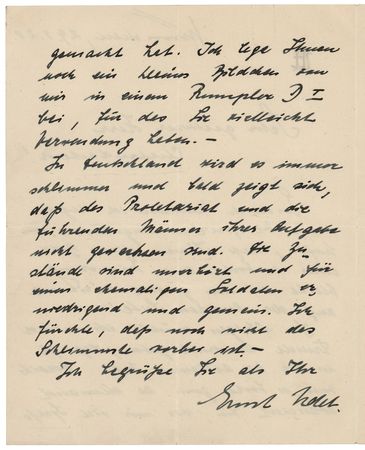 gemacht hat. Ich lege Ihnen
noch ein kleines Bildchen von
mir in einem Rumpler D I
bei, für das Sie vielleicht
Verwendung haben. –
In Deutschland wird es immer
schlimmer und bald zeigt sich,
daß das Proletariat und die
führenden Männer ihrer Aufgabe
nicht gewachsen sind. Die Zu-
stände sind unerhört und für
einen ehemaligen Soldaten er-
niedrigend und gemein. Ich
fürchte, daß noch nicht das
Schlimmste vorbei ist. –
Ich begrüße Sie als Ihr
Ernst Udet.